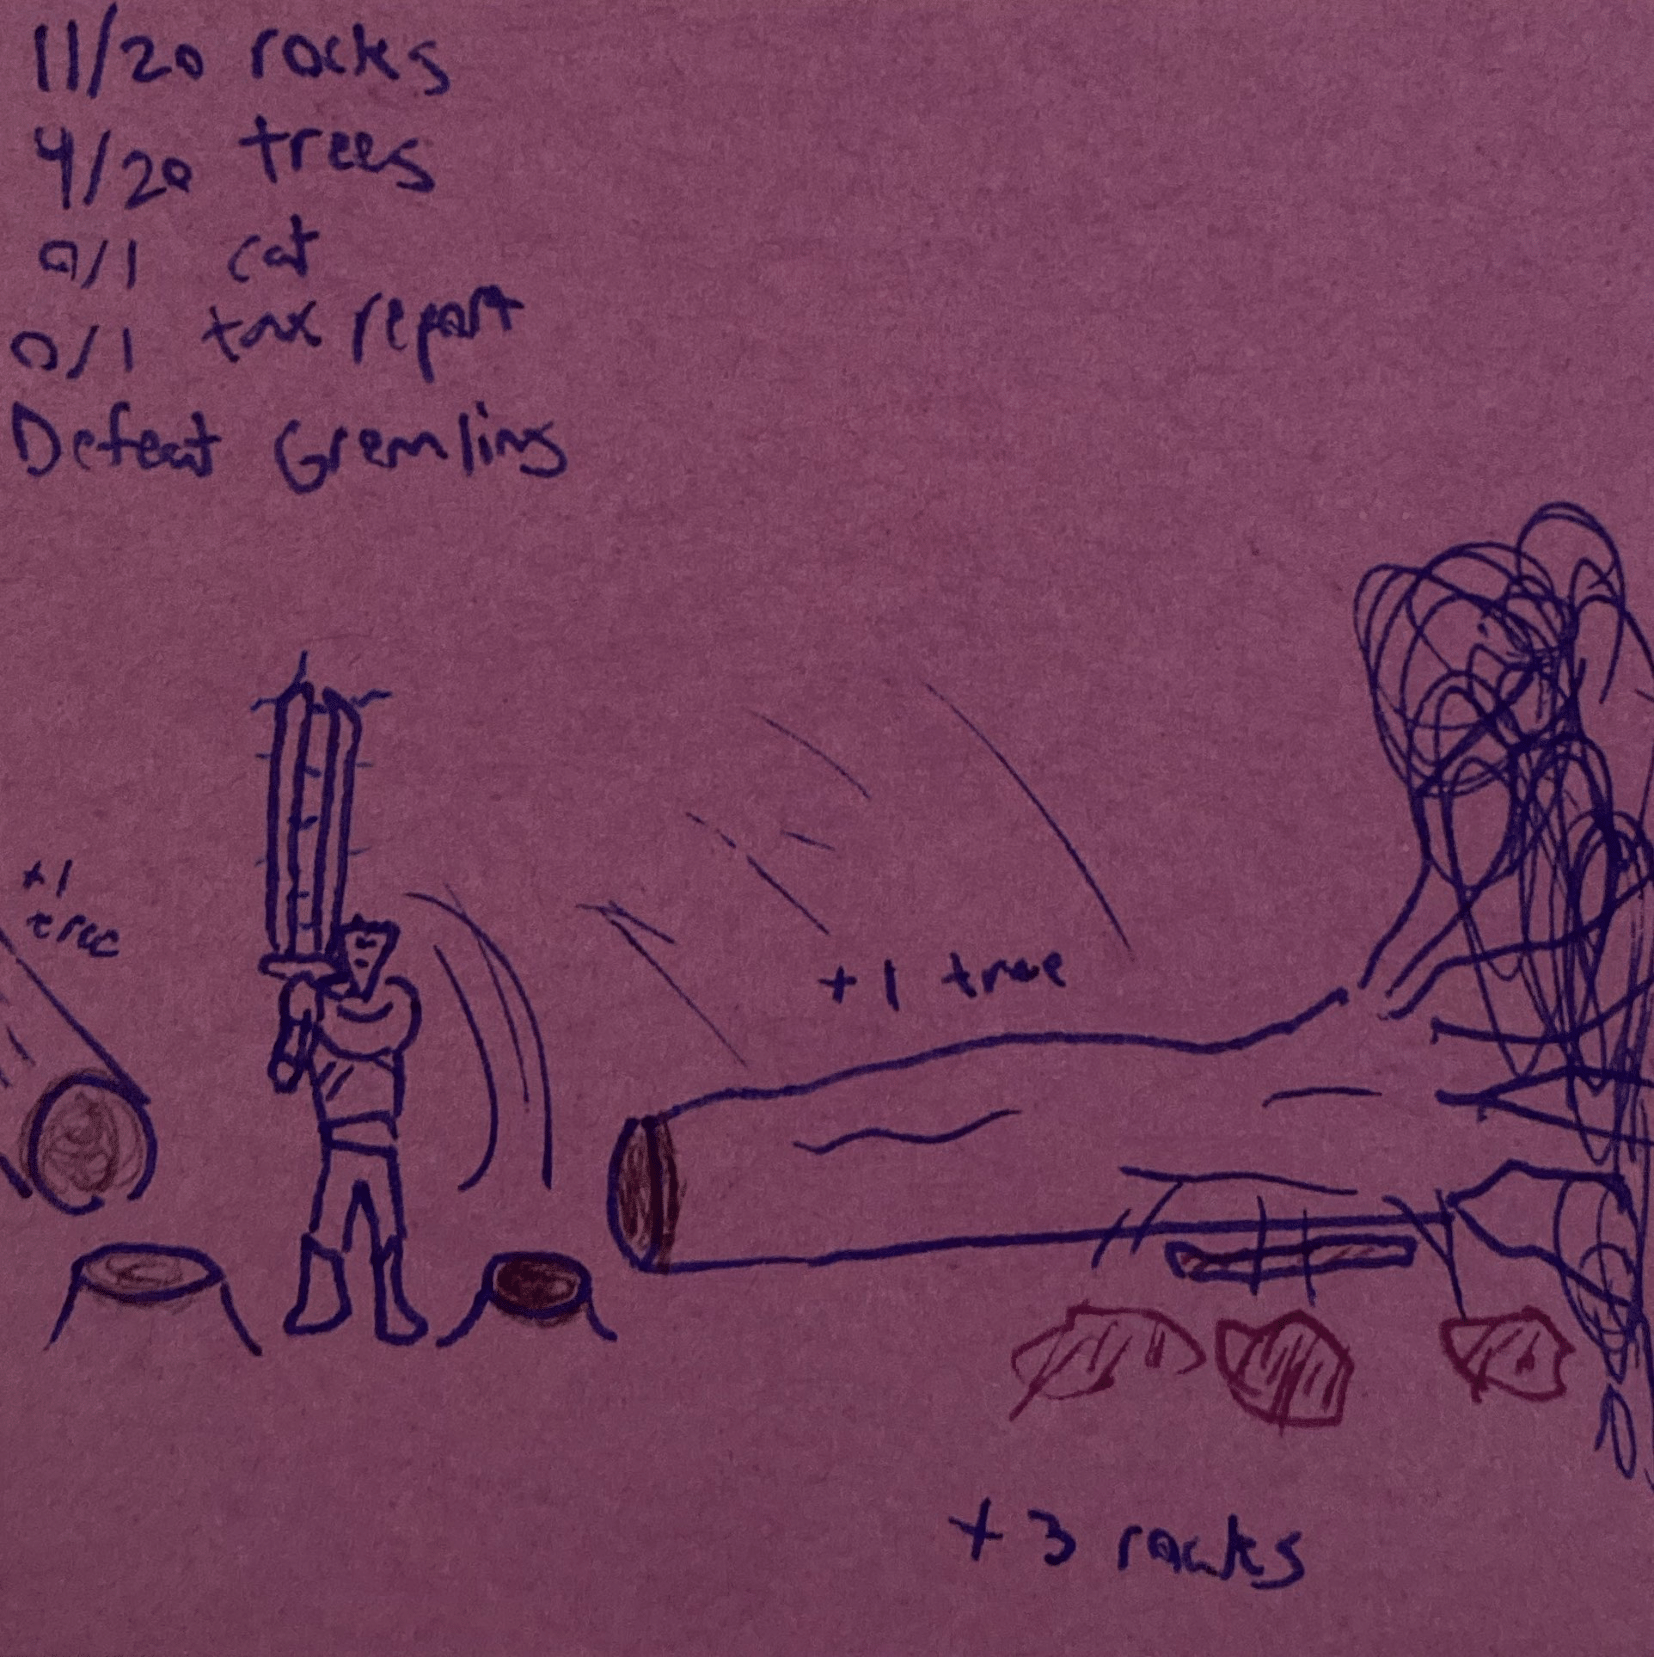 11/20 rocks
4/20 trees
0/1 cat
0/1 tax report
Defeat Gremlins
+1
tree
+1 tree
+3 rocks